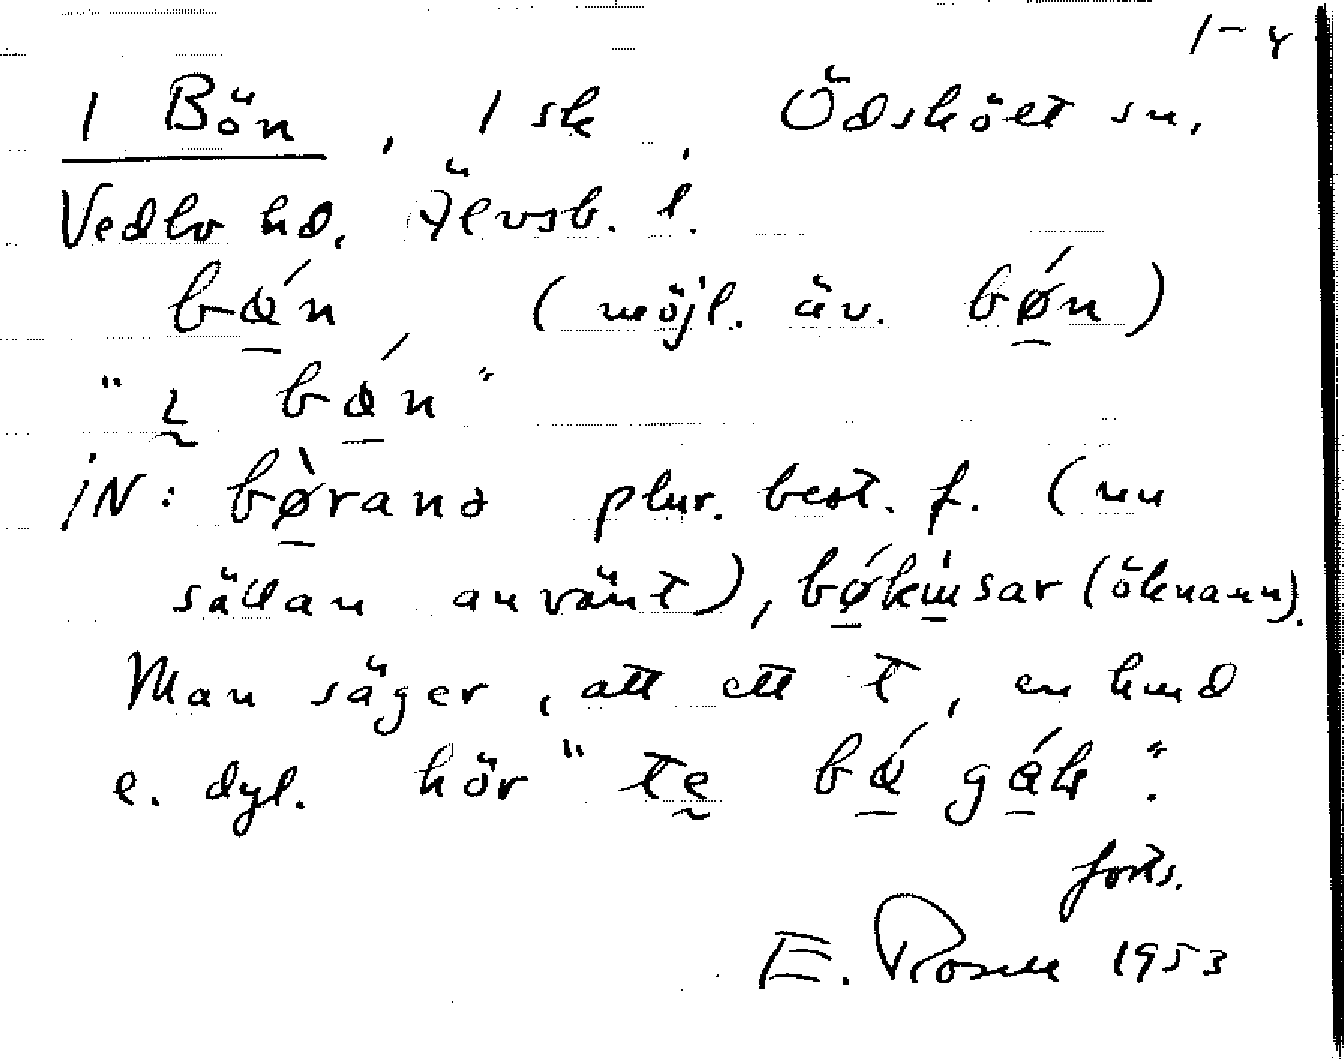 1-4
1 Bön, 1 sk, Ödskölt sn,
Vedbo hd, Älvsb. l.
bǿn, (möjl. äv. bǿn)
"ı̰ bǿn"
IN: bø̀rană plur. best. f. (nu
sällan använt), bǿkusar (öknamn).
Man säger, att ett t, en hund
e. dyl. hör "tḛ bǿ gáb".
forts.
E. Rosell 1953